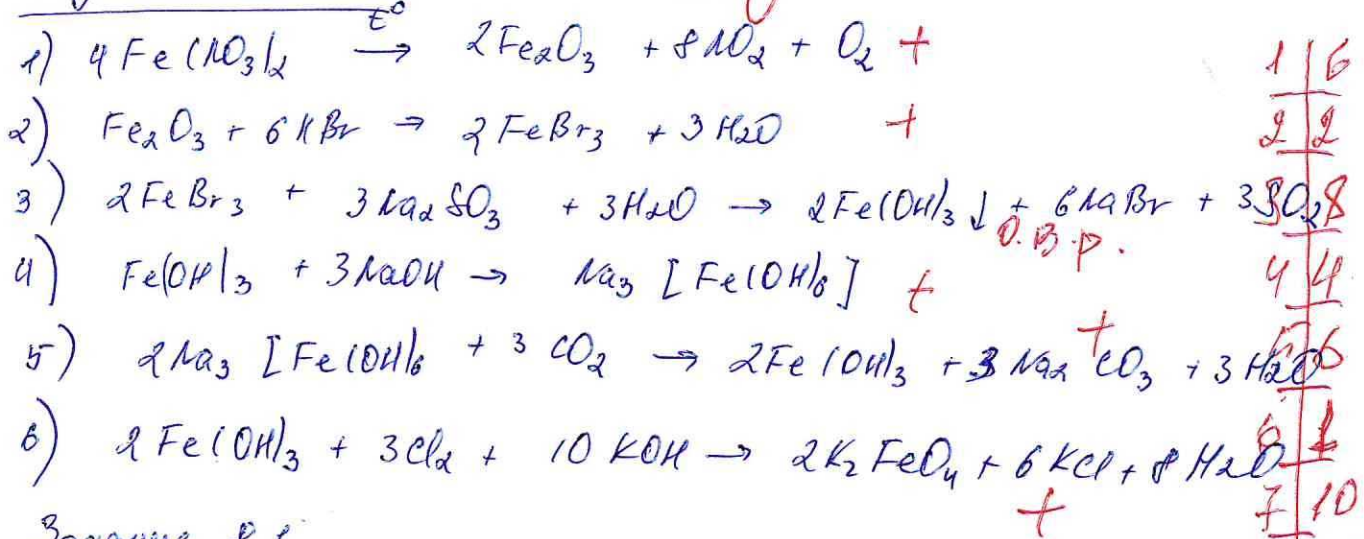 t°
1) 4 Fe(NO₃)₂ → 2Fe₂O₃ + 8NO₂ + O₂ +
1 | 6
2) Fe₂O₃ + 6HBr → 2FeBr₃ + 3H₂O +
2 | 2
3) 2FeBr₃ + 3Na₂SO₃ + 3H₂O → 2Fe(OH)₃↓ + 6NaBr + 3SO₂
3 | 8
О.В.Р.
4) Fe(OH)₃ + 3NaOH → Na₃[Fe(OH)₆] +
4 | 4
5) 2Na₃[Fe(OH)₆ + 3CO₂ → 2Fe(OH)₃ + 3Na₂CO₃ + 3H₂O +
5 | 6
6) 2Fe(OH)₃ + 3Cl₂ + 10KOH → 2K₂FeO₄ + 6KCl + 8H₂O +
6 | 1
7 | 10